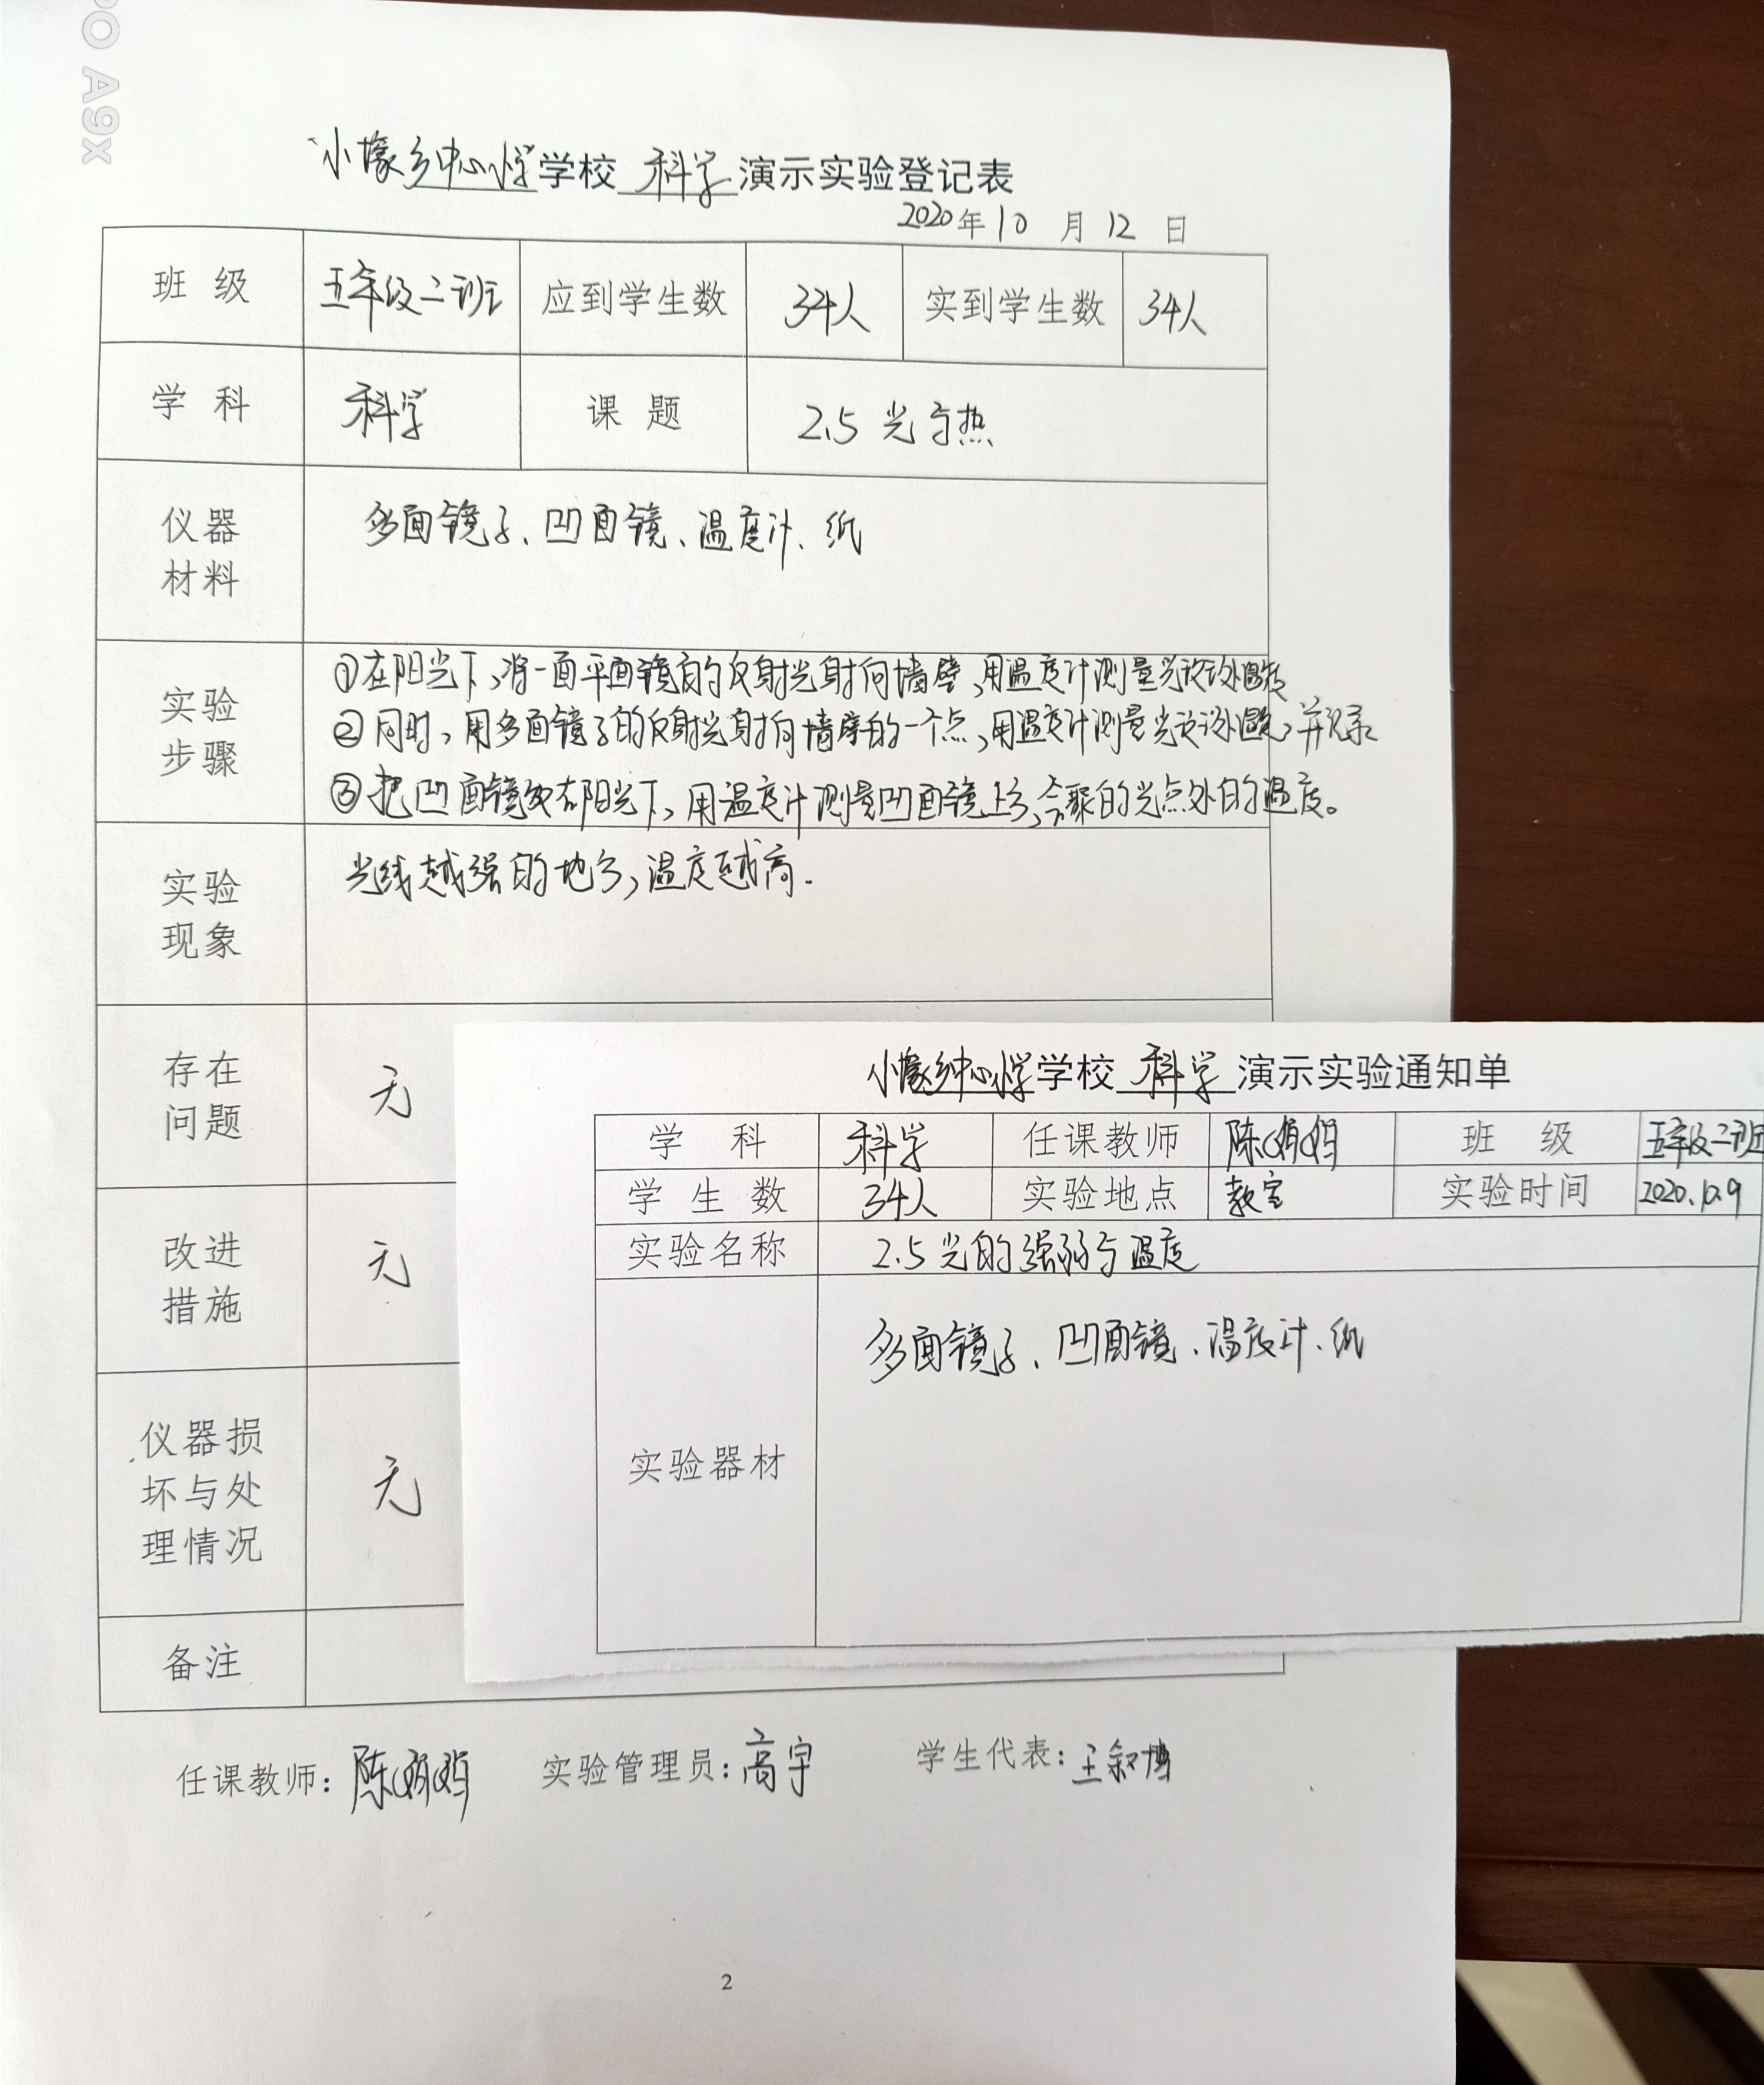 PO A9x
小壕乡中心小学学校 科学 演示实验登记表
2020年10月12日
班级 五年级二班 应到学生数 34人 实到学生数 34人
学科 科学 课题 2.5 光与热
仪器材料 多面镜子、凹面镜、温度计、纸
实验步骤 ①在阳光下,将一面平面镜的反射光射向墙壁,用温度计测量光斑处温度
②同时,用多面镜子的反射光射向墙壁的一个点,用温度计测量光斑处温度,并记录
③把凹面镜放在阳光下,用温度计测量凹面镜上方,会聚的光点处的温度。
实验现象 光线越强的地方,温度越高.
存在问题 无
改进措施 无
仪器损坏与处理情况 无
备注
任课教师: 陈娟娟 实验管理员: 高宇 学生代表: 王叙博
2
小壕乡中心小学学校 科学 演示实验通知单
学科 科学 任课教师 陈娟娟 班级 五年级二班
学生数 34人 实验地点 教室 实验时间 2020.10.9
实验名称 2.5 光的强弱与温度
实验器材 多面镜子、凹面镜、温度计、纸